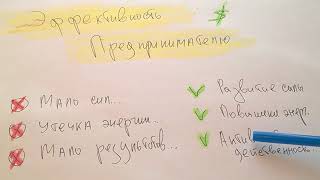 Эффективность
Предпринимателю
Мало сил...
Утечка энергии...
Мало результатов...
Развитие силы
Повышаем энер.
действеннос